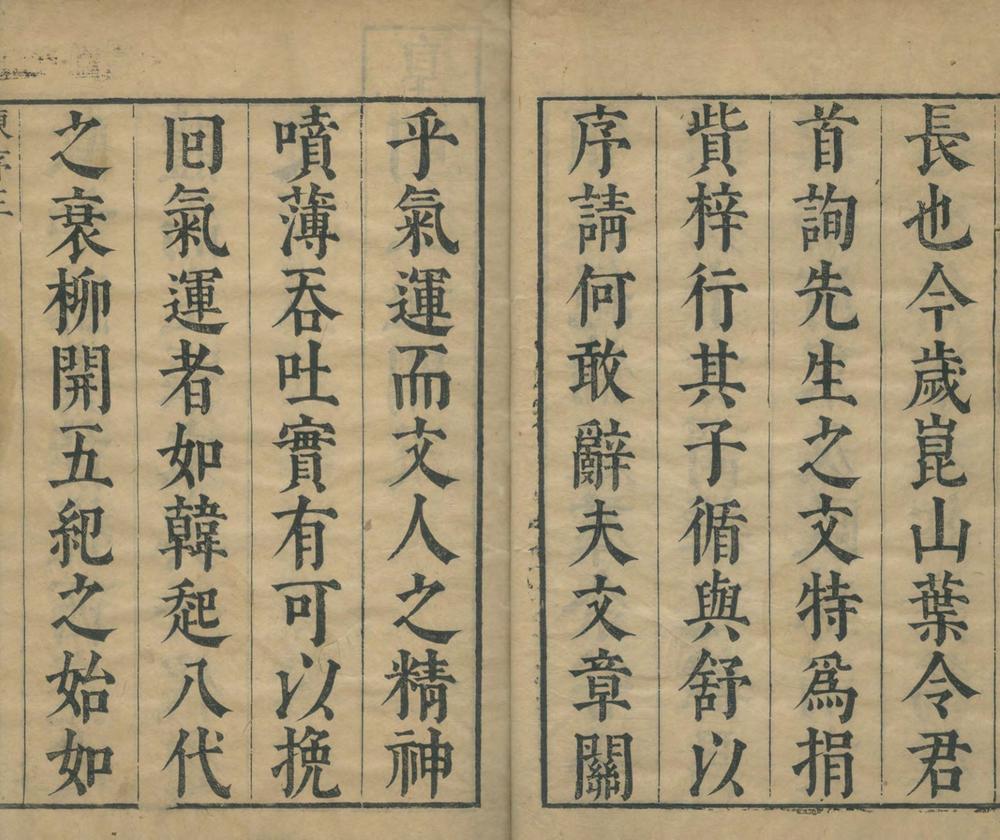 長也今歲崑山葉令君
首詢先生之文特爲捐
貲梓行其子循與舒以
序請何敢辭夫文章關
乎氣運而文人之精神
噴薄吞吐實有可以挽
回氣運者如韓起八代
之衰柳開五紀之始如